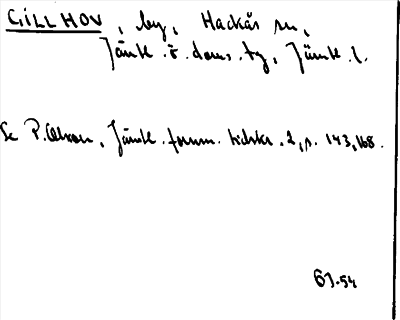 GILLHOV, by, Hackås sn,
Jämtl. ö. doms. tg, Jämtl. l.
Se P. Olsson, Jämtl. fornm. tidskr. 2, s. 143, 168.
61.54